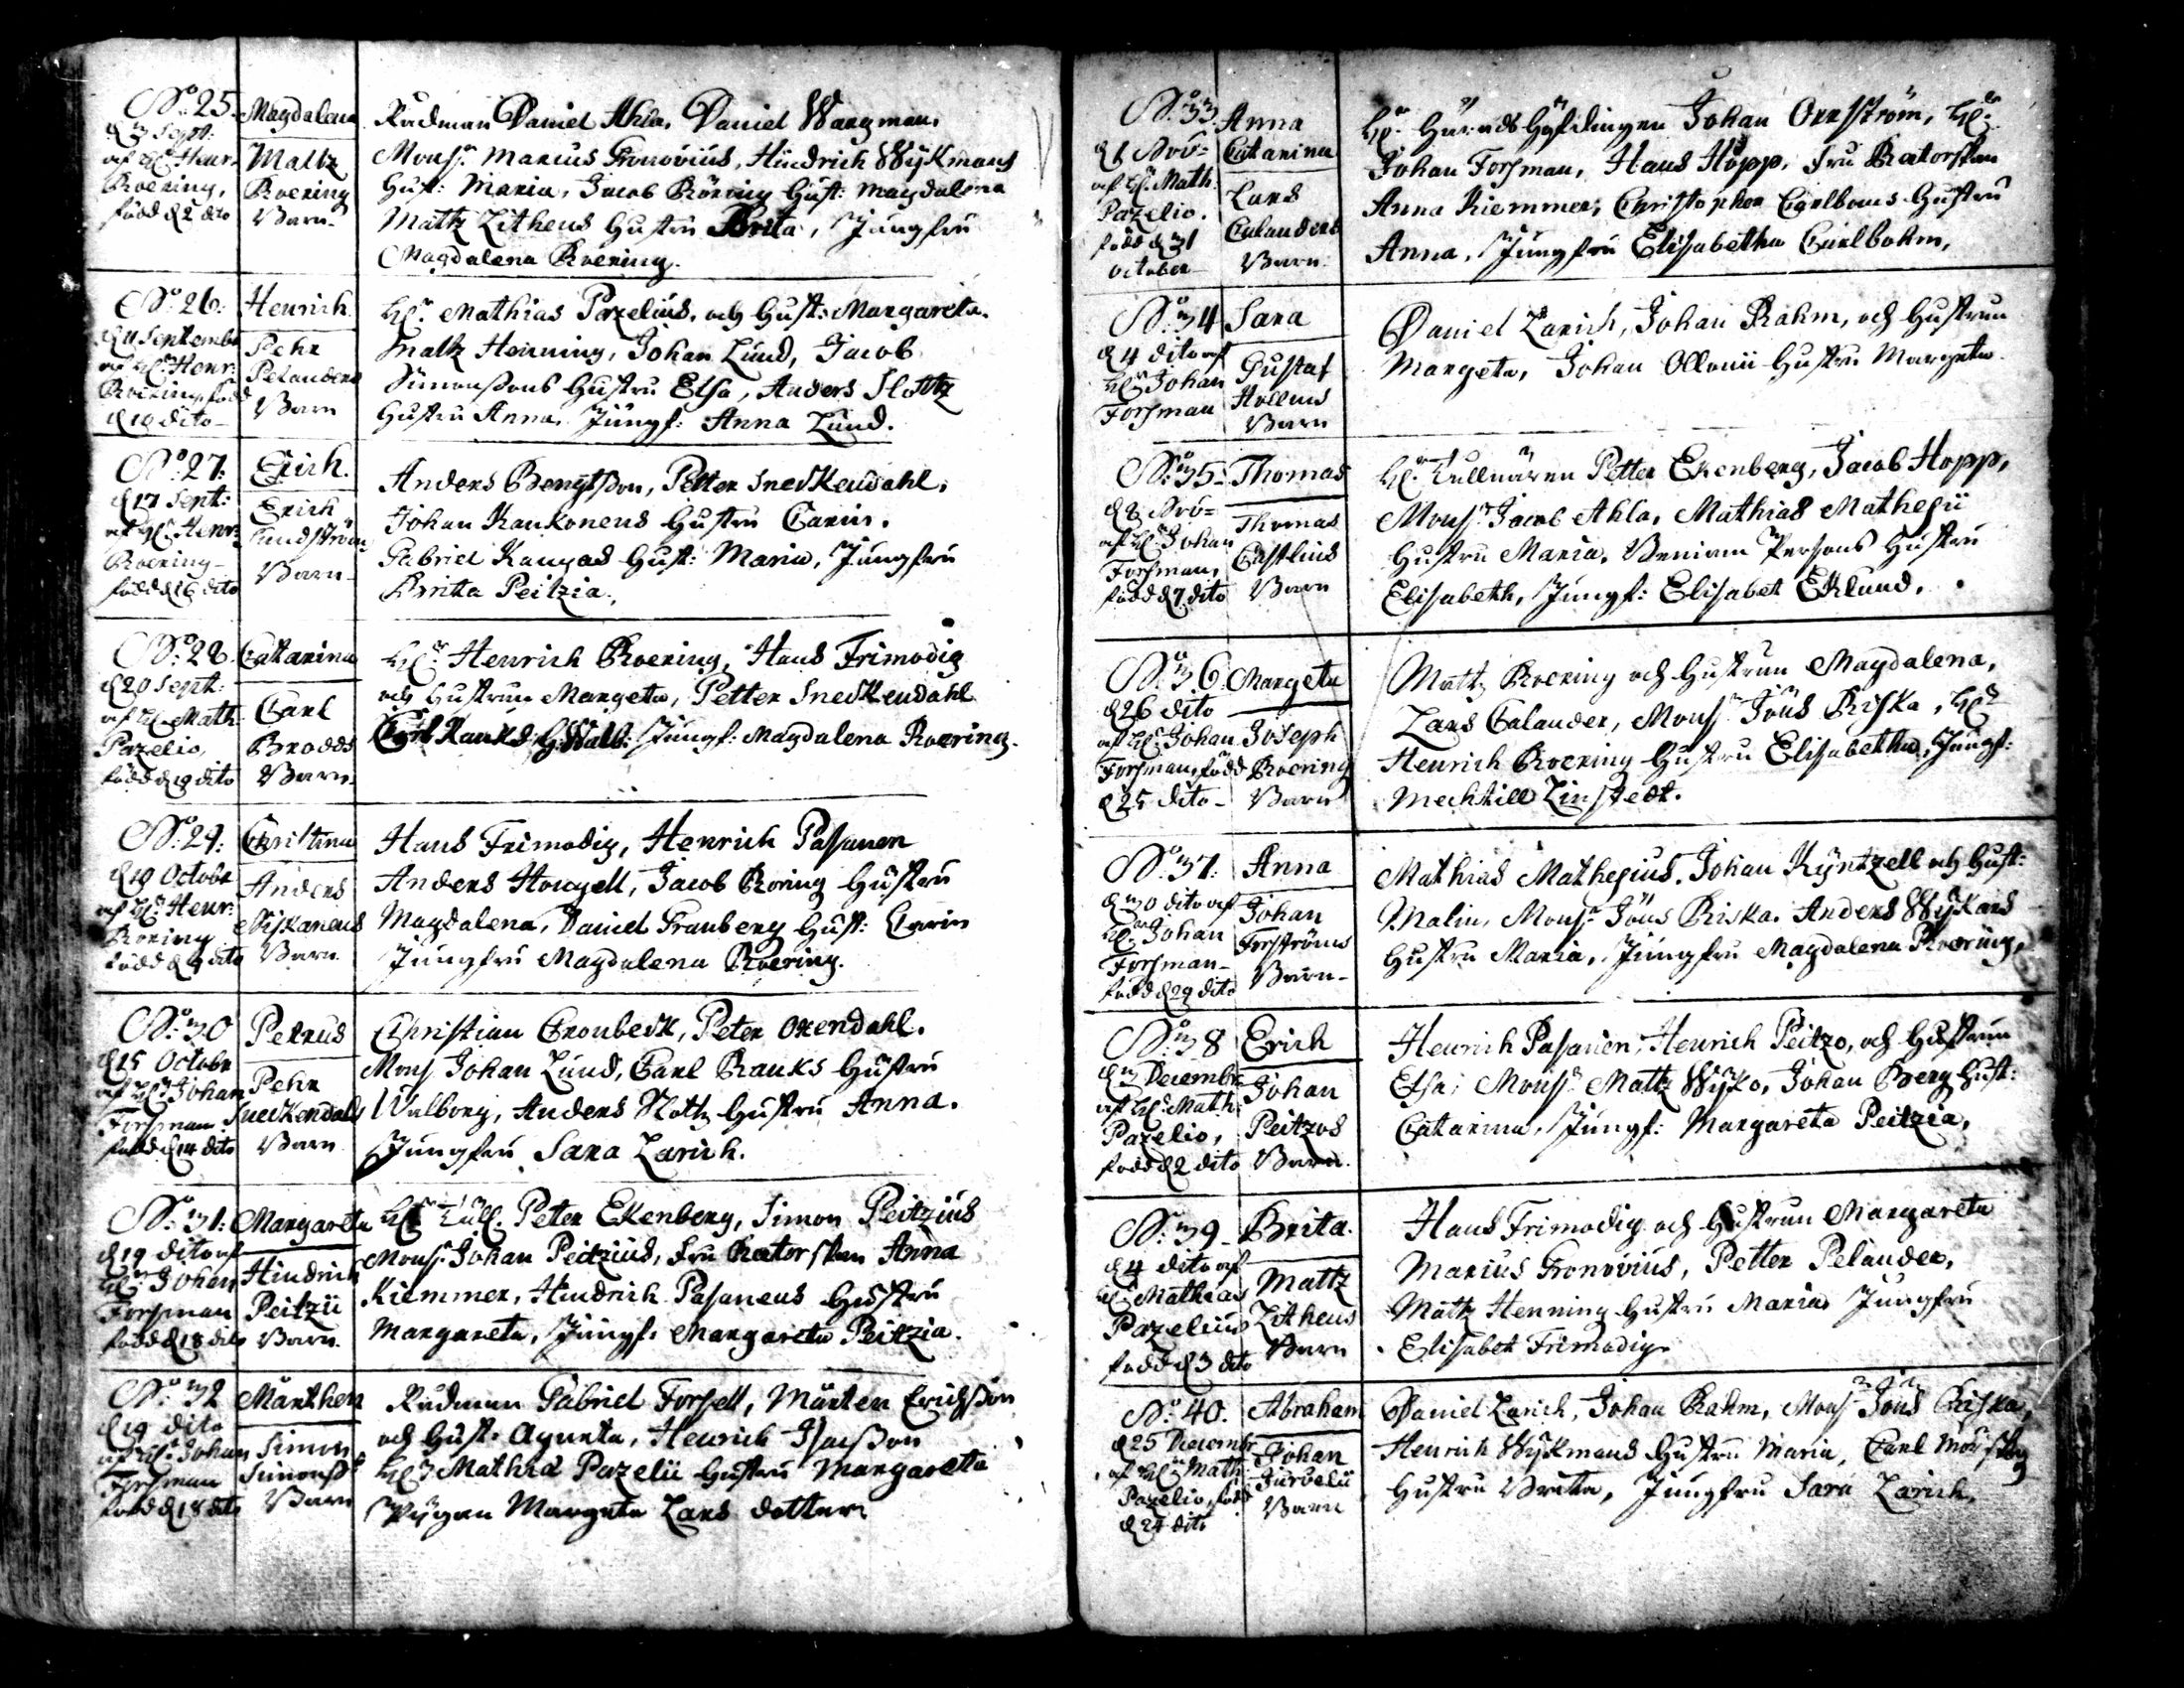 No: 25.
d 3 Sept:
af H:r Henr:
Roering,
född d 2 dito
Magdalena
Mattz
Roering
Barn
Rådman Daniel Ahla, Daniel Wargman,
Mons:r Marius Gronovius, Hindrich Wijkmans
Hust: Maria, Jacob Röring Hust: Magdalena
Mattz Litheus Hustru Brita, Jungfru
Magdalena Roering.
No: 26:
d 11 Septembr
af H:r Henr:
Roering, född
d 10 dito
Henrich
Pehr
Pelanders
Barn
H:r Mathias Pazelius, och Hust: Margareta.
Mattz Henning, Johan Lund, Jacob
Simonssons Hustru Elsa, Anders Slottz
Hustru Anna, Jungf: Anna Lund.
No: 27:
d 17 Sept:
af H:r Henr:
Roering
född d 16 dito
Erich.
Erich
Lundström
Barn
Anders Bengtsson, Petter Sneckendahl,
Johan Kaukonens Hustru Carin,
Gabriel Kangas Hust: Maria, Jungfru
Britta Peitzia.
No: 28.
d 20 Sept:
af H:r Math:
Pazelio
född d 19 dito
Catarina
Carl
Brodds
Barn
H:r Henrich Roering, Hans Frimodig
och Hustrun Margeta, Petter Sneckendahl
Carl Rauks H: Walb: Jungf: Magdalena Roering.
No: 29:
d 10 Octobr
af H:r Henr:
Roering
född d 9 dito
Christina
Anders
Piskanens
Barn
Hans Frimodig, Henrich Passanen
Anders Hougell, Jacob Roring Hustru
Magdalena, Daniel Granberg Hust: Carin
Jungfru Magdalena Roering.
No: 30
d 15 Octobr
af H:r Johan
Forsman
född d 14 dito
Petrus
Pehr
Sneckendals
Barn
Christian Cronbeck, Peter Oxendahl.
Mons Johan Lund, Carl Rauks Hustru
Walborg, Anders Slottz Hustru Anna.
Jungfru Sara Larich.
No: 31:
d 19 dito af
H:r Johan
Forsman
född d 18 dito
Margareta
Hindrich
Peitzii
Barn.
H:r Tull. Peter Ekenberg, Simon Peitzius
Mons:r Johan Peitzius, Fru Rectorskan Anna
Kiemmer, Hindrich Pasanens Hustru
Margareta, Jungf: Margareta Peitzia.
No: 32
d 19 dito
af H:r Johan
Forsman
född d 18 dito
Marthen
Simon
Simonss:s
Barn
Rådman Gabriel Forsell, Mårten Erichsson
och Hust: Agneta, Henrich Isacsson
H:r Mathia Pazelii Hustru Margareta
Pigan Margeta Lars dotter
No: 33
d 1 Nov:
af H:r Math:
Pazelio.
född d 31
October
Anna
Catarina
Lars
Calanders
Barn
H:r Härads Höfdingen Johan Orrström, H:r
Johan Forsman, Hans Hopp, Fru Rectorskan
Anna Kiemmer, Christopher Carlboms Hustru
Anna, Jungfru Elisabetha Carlbohm,
No: 34
d 4 dito af
H:r Johan
Forsman
Sara
Gustaf
Hollms
Barn
Daniel Larich, Johan Rahm, och Hustrun
Margeta, Johan Ollonii Hustru Margeta.
No: 35
d 8 Nov:
af H:r Johan
Forsman,
född d 7 dito
Thomas
Thomas
Castlins
Barn
H:r Tullnären Petter Ekenberg, Jacob Hopp,
Mons:r Jacob Ahla, Mathias Mathesii
Hustru Maria, Beniam Persons Hustru
Elisabeth, Jungf: Elisabet Eklund.
No: 36
d 26 dito
af H:r Johan
Forsman, född
d 25 dito
Margeta
Joseph
Roering
Barn
Mattz Roering och Hustrun Magdalena,
Lars Calander, Mons:r Jöns Riska, H:r
Henrich Roering Hustru Elisabetha, Jungf:
Mechtill Linstedt.
No: 37:
d 30 dito af
H:r Johan
Forsman
född d 29 dito
Anna
Johan
Forströms
Barn
Mathias Mathesius, Johan Kyntzell och Hust:
Malin, Mons:r Jöns Riska, Anders Wijkars
Hustru Maria, Jungfru Magdalena Roering,
No: 38
d 3 Decembr
af H:r Math:
Pazelio,
född d 2 dito
Erich
Johan
Peitzos
Barn.
Henrich Pasanen, Henrich Peitzo, och Hustrun
Elsa, Mons:r Mattz Wijko, Johan Berg Hust:
Catarina, Jungf: Margareta Peitzia,
No: 39
d 4 dito af
H:r Mathias
Pazelius
född d 3 dito
Brita.
Mattz
Litheus
Barn
Hans Frimodig och Hustrun Margareta
Marius Gronovius, Petter Pelander,
Mattz Henning Hustru Maria, Jungfru
Elisabet Frimodig
No: 40.
d 25 Decembr
af H:r Math:
Pazelio, född
d 24 dito
Abraham
Johan
Jurvelii
Barn
Daniel Larich, Johan Rahm, Mons:r Jöns Riska,
Henrich Wijkmans Hustru Maria, Carl
Hustru Brita, Jungfru Sara Larich.